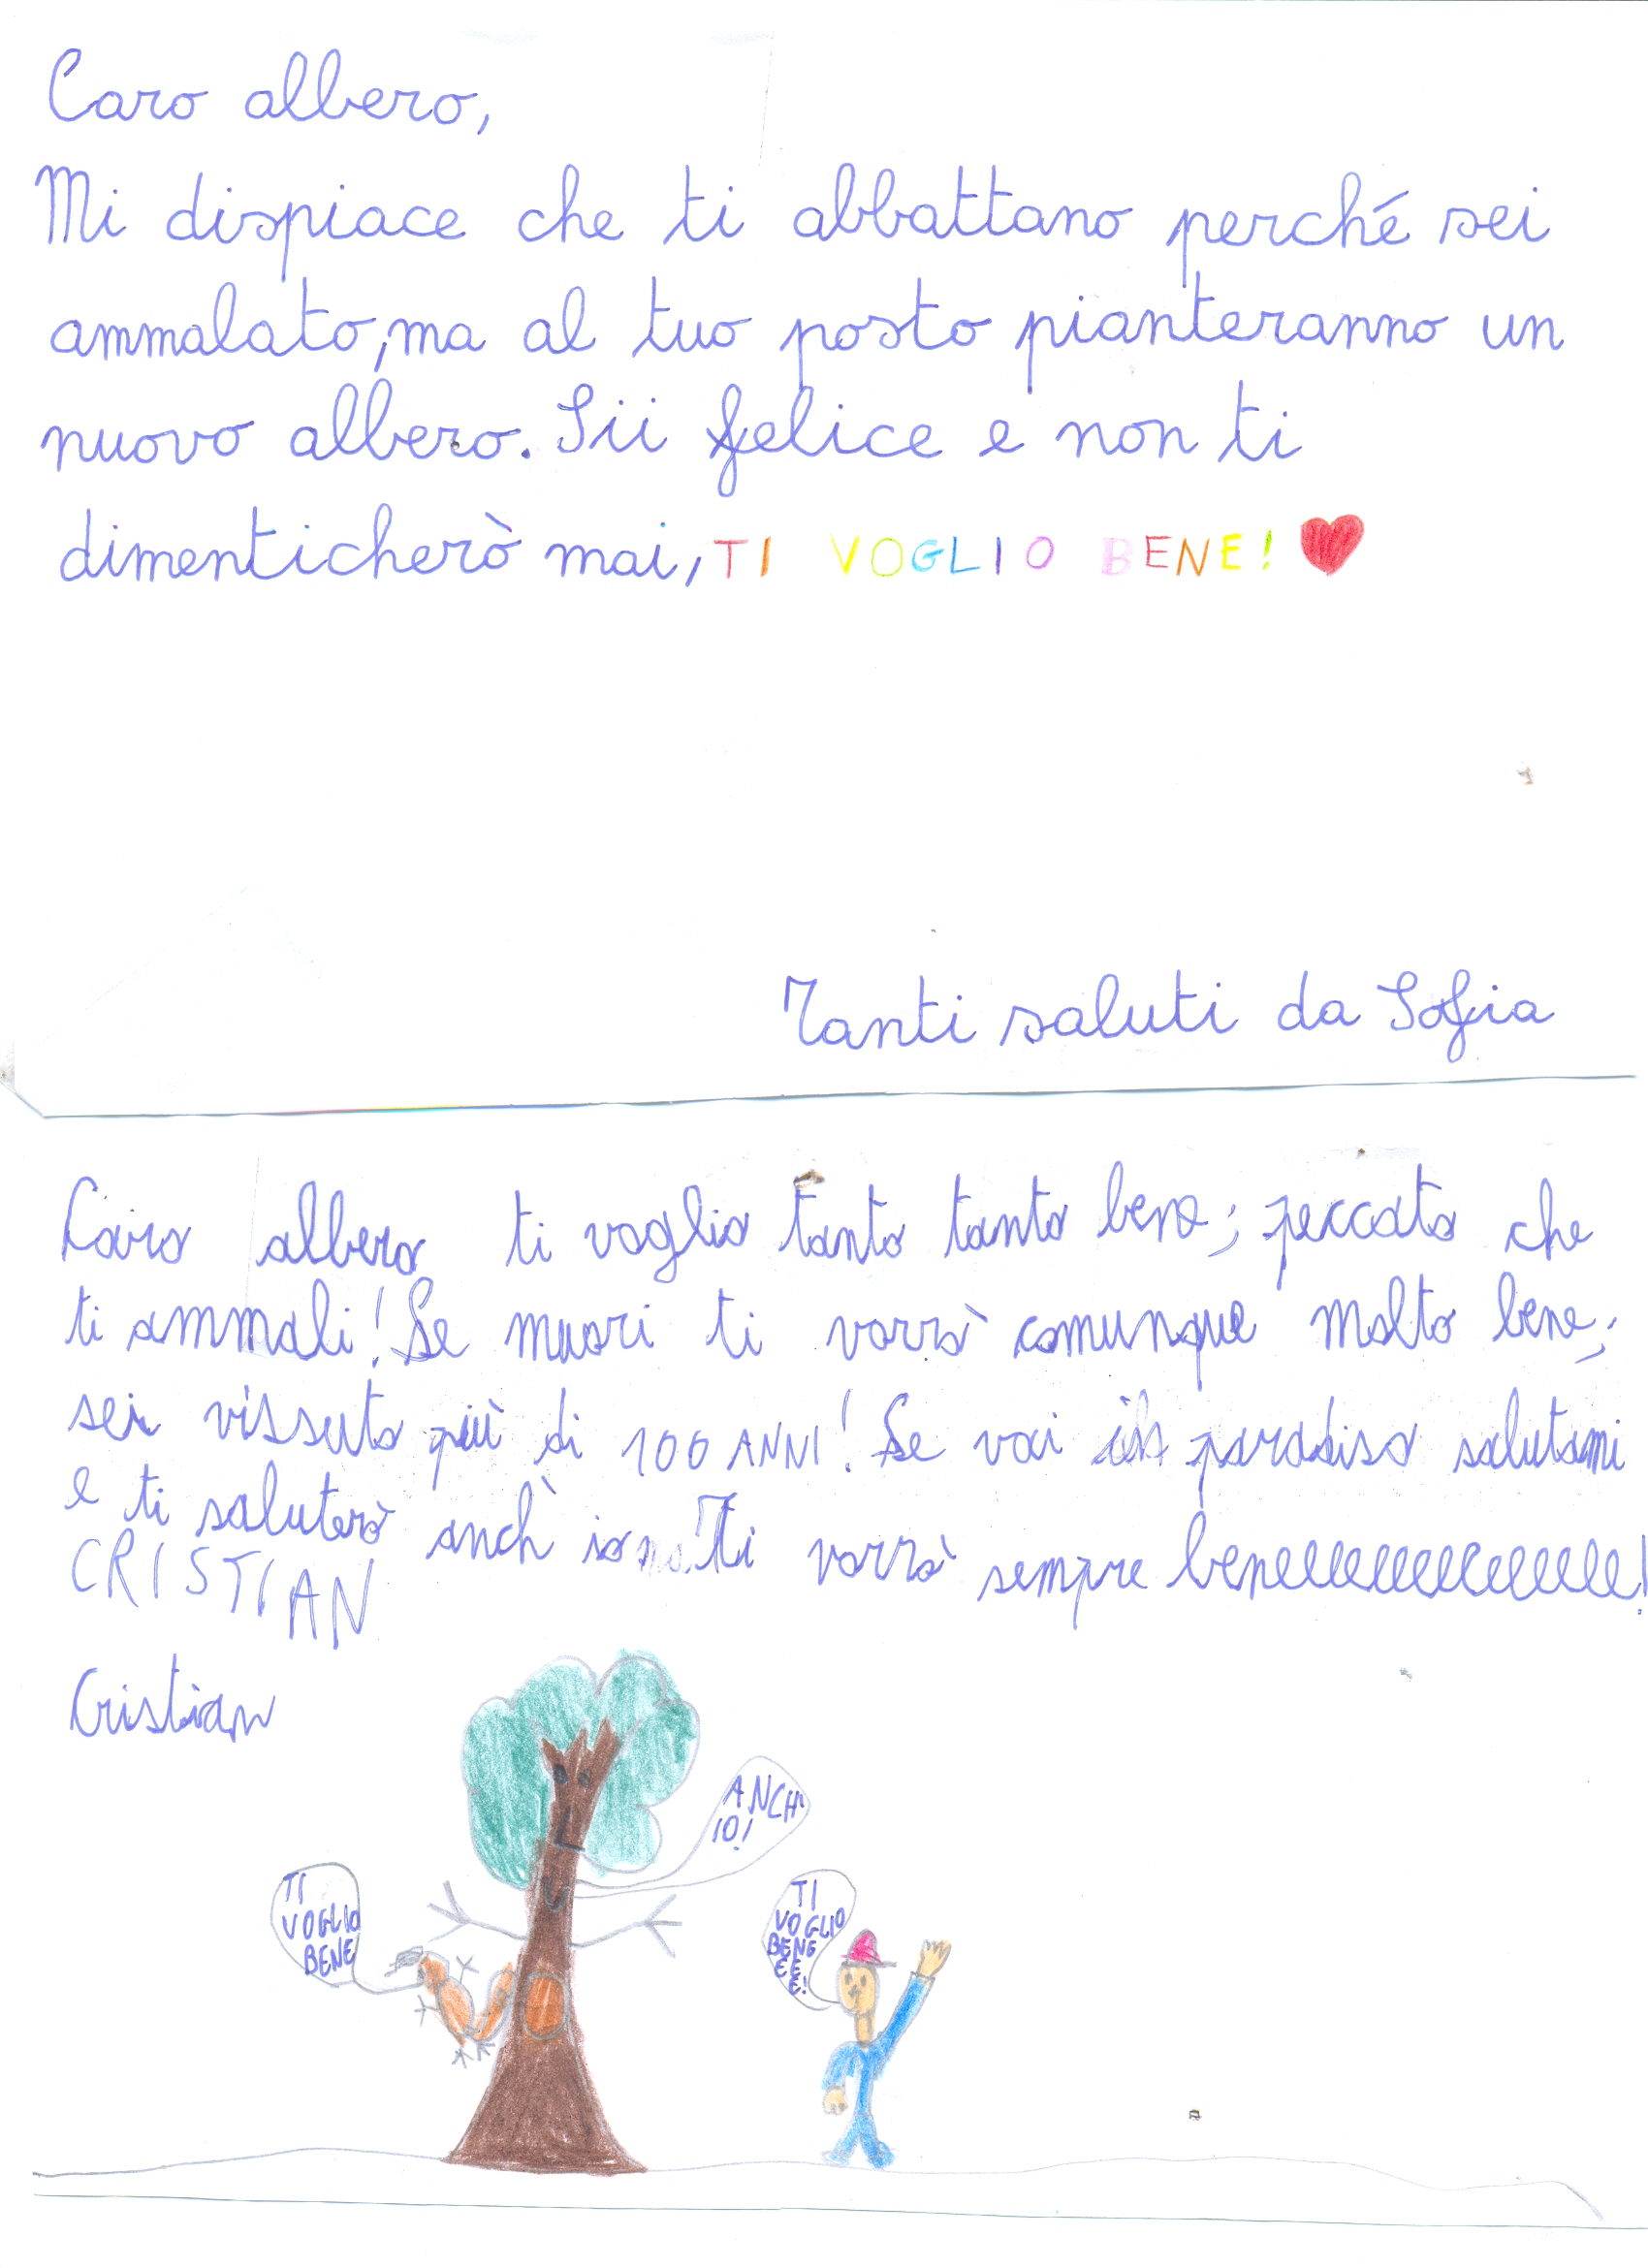 Caro albero,
Mi dispiace che ti abbattano perché sei
ammalato, ma al tuo posto pianteranno un
nuovo albero. Sii felice e non ti
dimenticherò mai, TI VOGLIO BENE!
Tanti saluti da Sofia
Caro albero ti voglio tanto tanto bene; peccato che
ti ammali! Se muori ti vorrò comunque molto bene;
sei vissuto più di 100 ANNI! Se vai in paradiso salutami
e ti saluterò anch io Ti vorrò sempre beneeeeeeeeeeeeeee!
CRISTIAN
Cristian
ANCH'
IO!
TI
VOGLIO
BENE
TI
VOGLIO
BENE
EE
E!